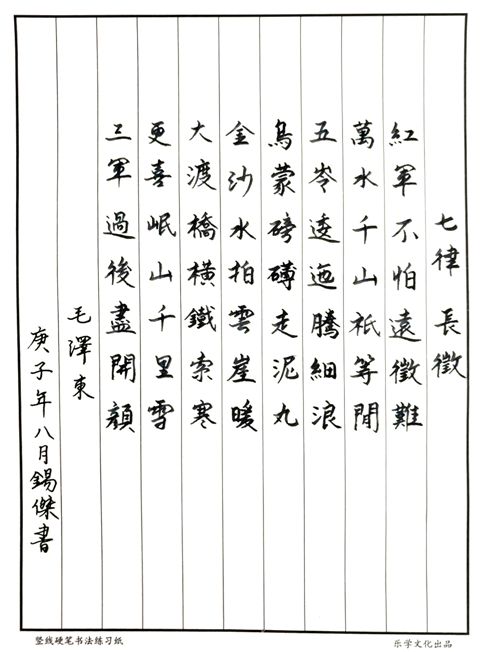 七律 長徵
紅軍不怕遠徵難
萬水千山祇等閒
五岺逶迤騰細浪
烏蒙磅礴走泥丸
金沙水拍雲崖暖
大渡橋橫鐵索寒
更喜岷山千里雪
三軍過後盡開顏
毛澤東
庚子年八月錫傑書
竖线硬笔书法练习纸
乐学文化出品